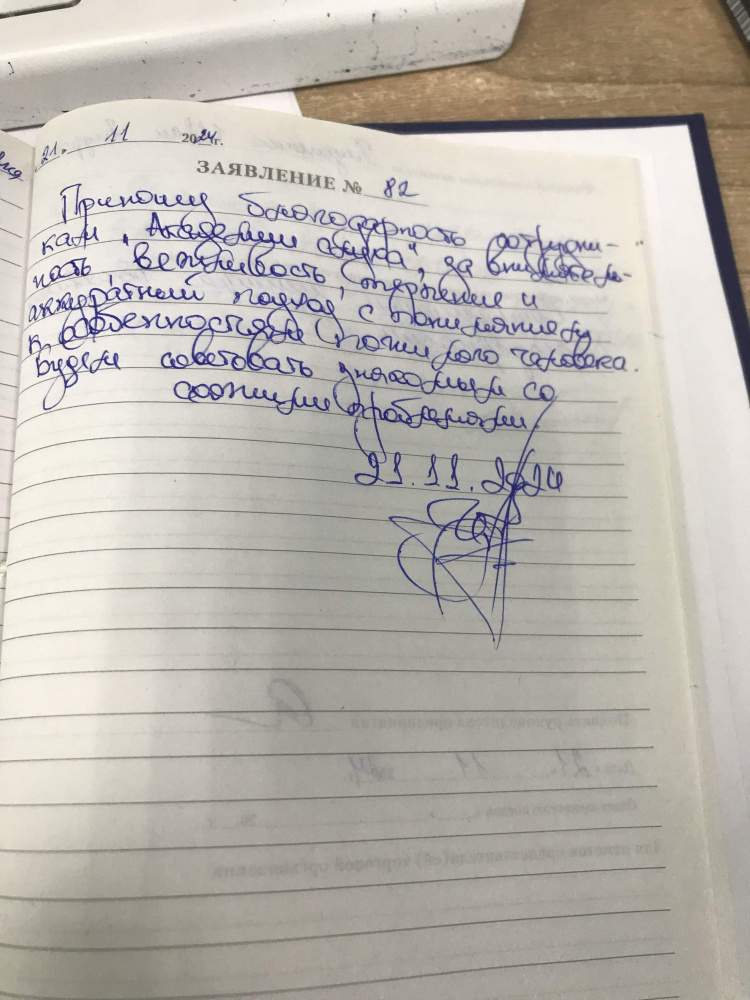 21. 11 2024г.
ЗАЯВЛЕНИЕ № 82
Приношу благодарность сотрудни-
кам "Академии слуха", за вниматель-
ность вежливость, терпение и
аккуратный подход с пониманием
к особенностям пожилого человека.
Будем советовать знакомым со
схожими проблемами.
21.11.2024